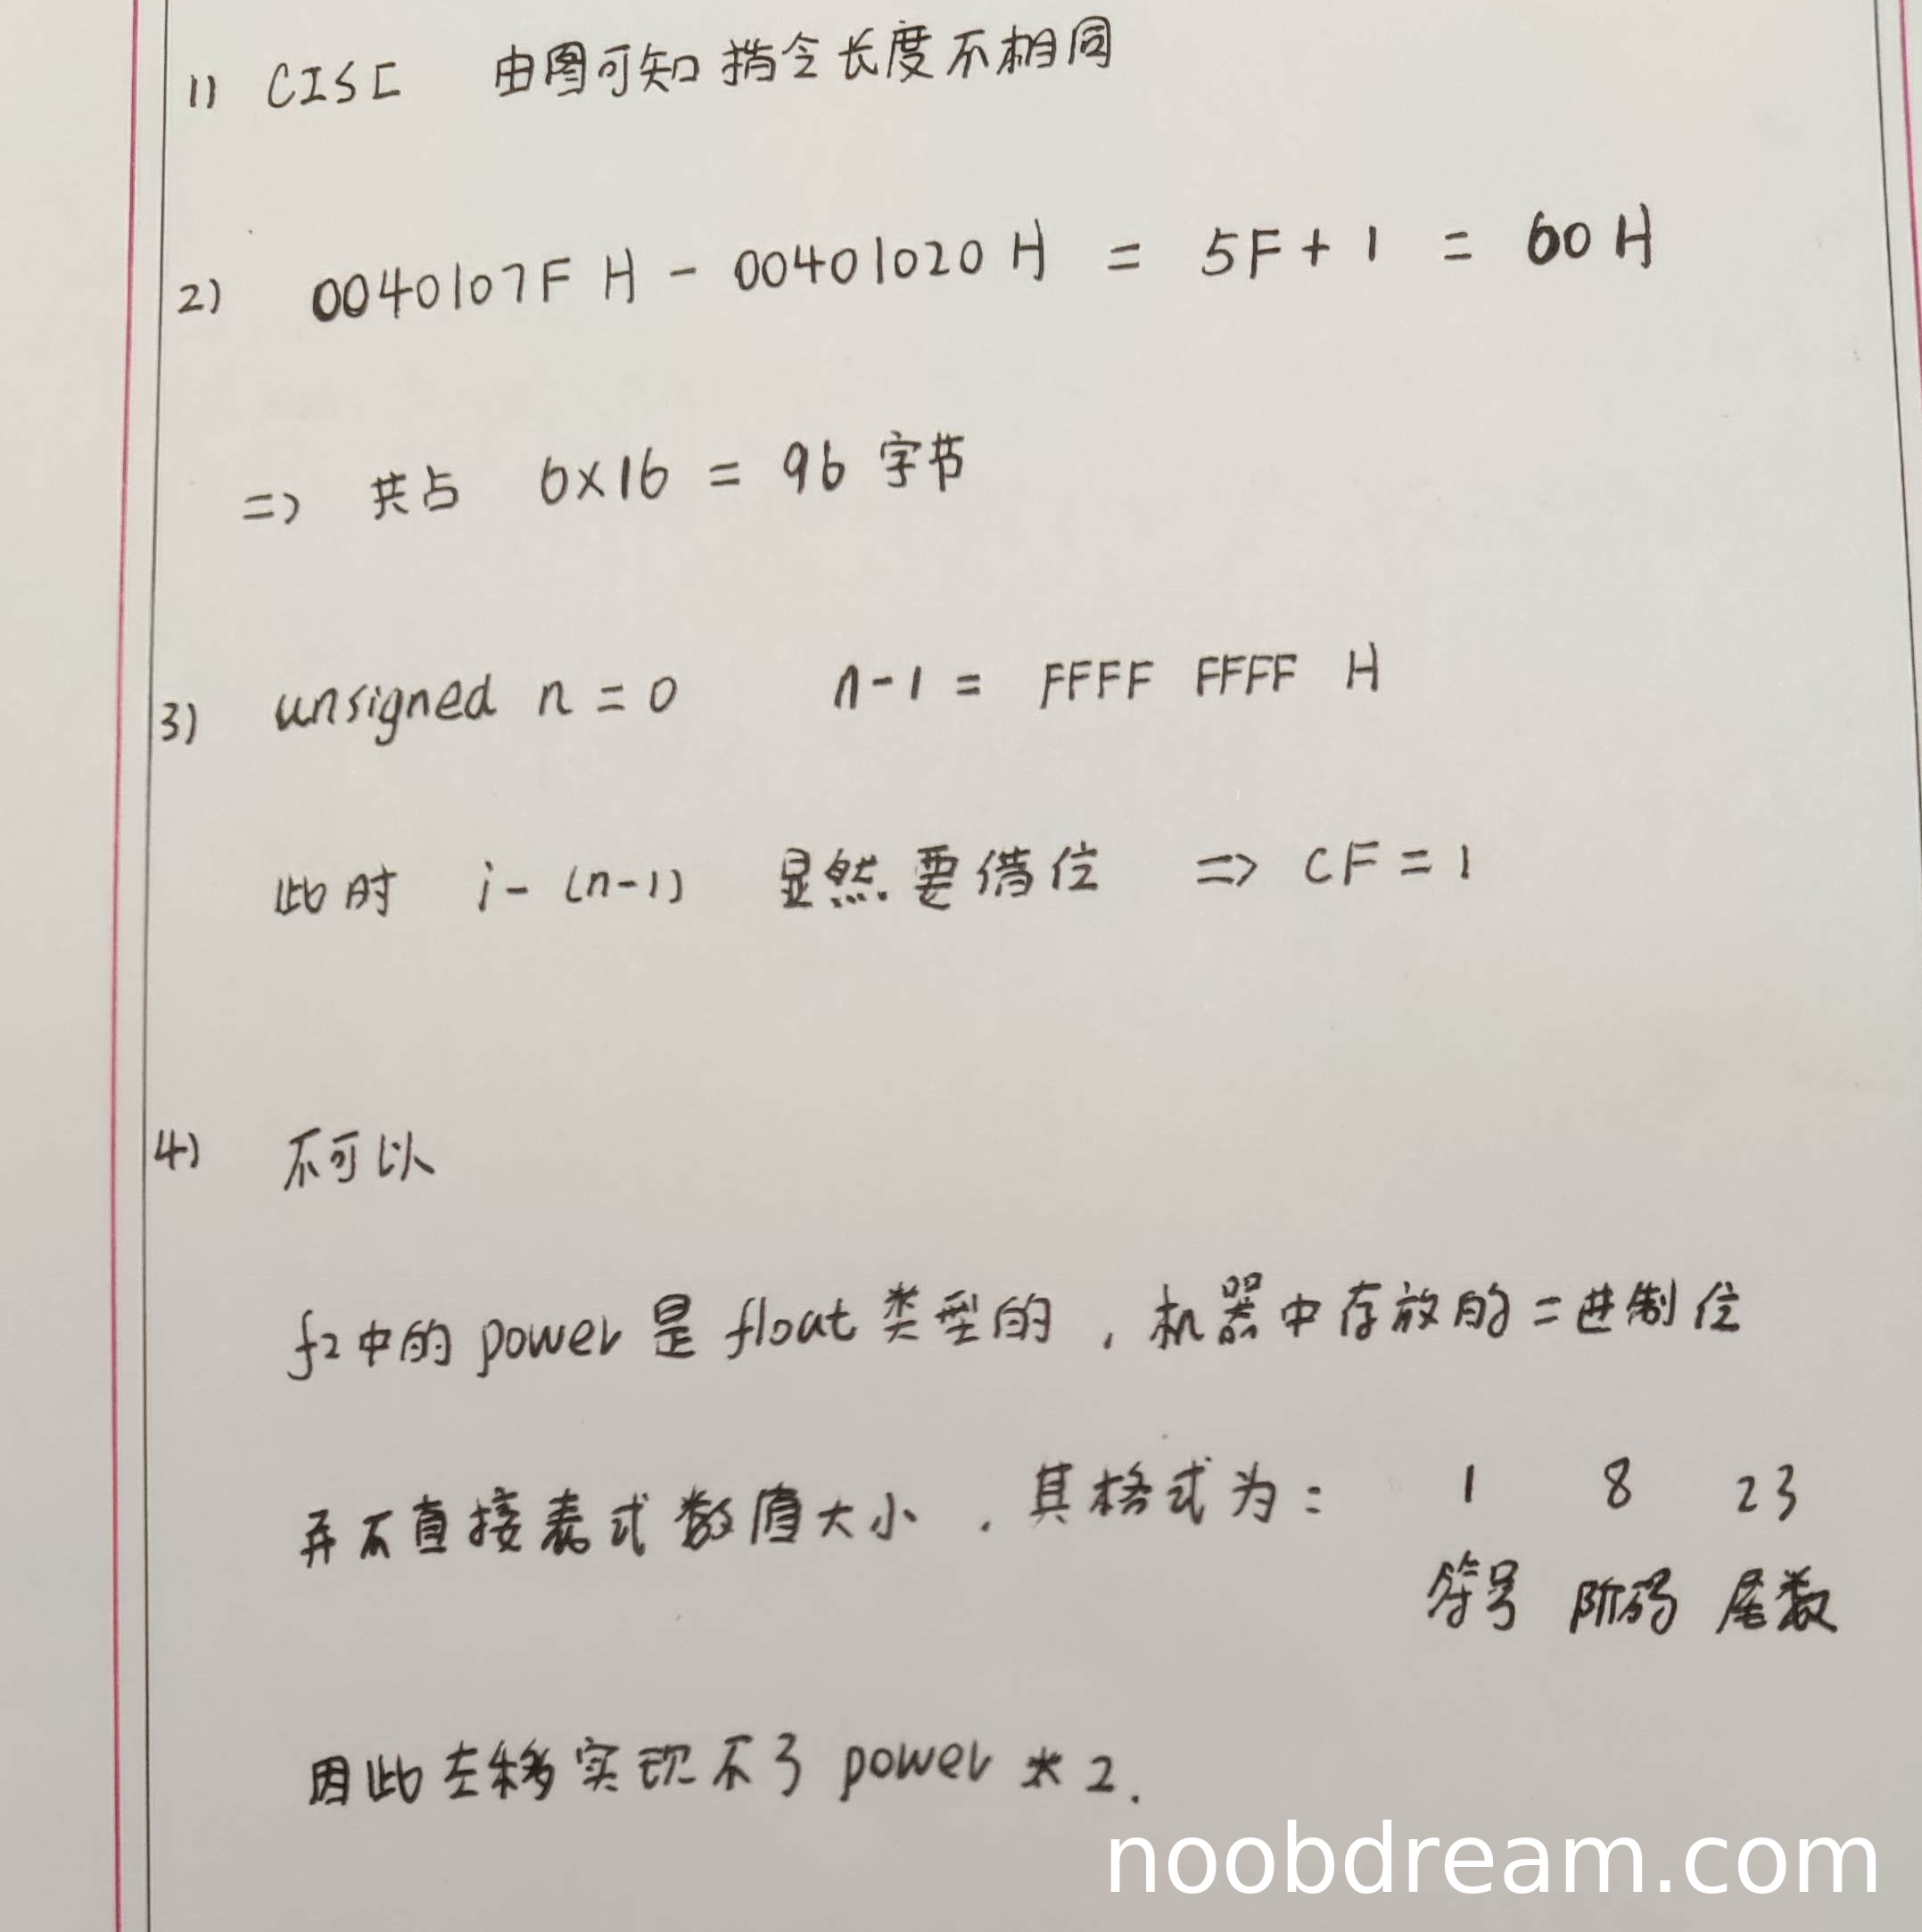 1) CISC 由图可知 指令长度不相同
2) 0040107F H - 00401020 H = 5F + 1 = 60 H
=> 共占 6×16 = 96 字节
3) unsigned n = 0 n-1 = FFFF FFFF H
此时 i - (n-1) 显然要借位 => CF = 1
4) 不可以
f2中的 power 是 float 类型的 , 机器中存放的二进制位
并不直接表式数值大小 . 其格式为: 1 8 23
符号 阶码 尾数
因此左移实现不了 power * 2.
noobdream.com